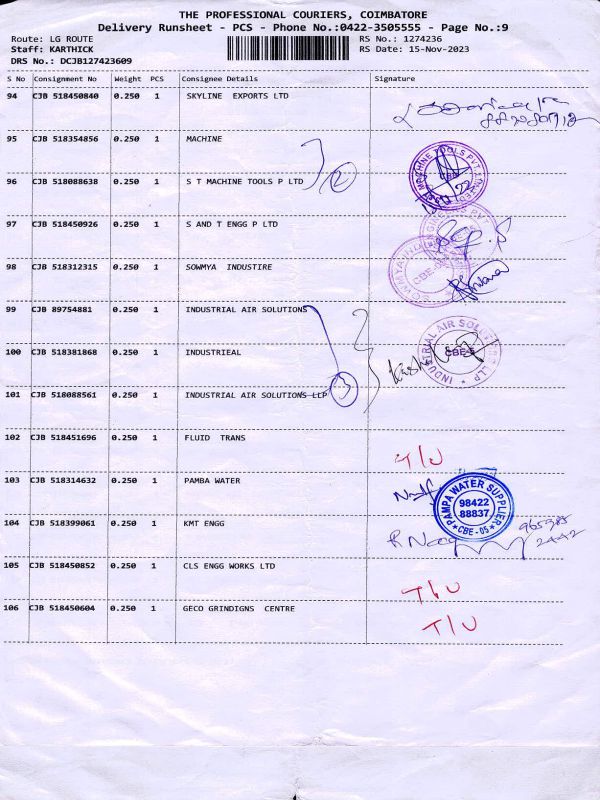 THE PROFESSIONAL COURIERS, COIMBATORE
Delivery Runsheet - PCS - Phone No.:0422-3505555 - Page No.:9
Route: LG ROUTE RS No.: 1274236
Staff: KARTHICK RS Date: 15-Nov-2023
DRS No.: DCJB127423609
S No Consignment No Weight PCS Consignee Details Signature
94 CJB 518450840 0.250 1 SKYLINE EXPORTS LTD
95 CJB 518354856 0.250 1 MACHINE
96 CJB 518088638 0.250 1 S T MACHINE TOOLS P LTD 2
97 CJB 518450926 0.250 1 S AND T ENGG P LTD
98 CJB 518312315 0.250 1 SOWMYA INDUSTIRE
CBE
99 CJB 89754881 0.250 1 INDUSTRIAL AIR SOLUTIONS
100 CJB 518381868 0.250 1 INDUSTRIEAL
INDUSTRIAL AIR SOLUTIONS LLP
101 CJB 518088561 0.250 1 INDUSTRIAL AIR SOLUTIONS LLP 3
102 CJB 518451696 0.250 1 FLUID TRANS
T/U
103 CJB 518314632 0.250 1 PAMBA WATER
PAMPA WATER SUPPLIER
98422
88837
CBE-05
104 CJB 518399061 0.250 1 KMT ENGG
105 CJB 518450852 0.250 1 CLS ENGG WORKS LTD
T/U
106 CJB 518450604 0.250 1 GECO GRINDIGNS CENTRE
T/U